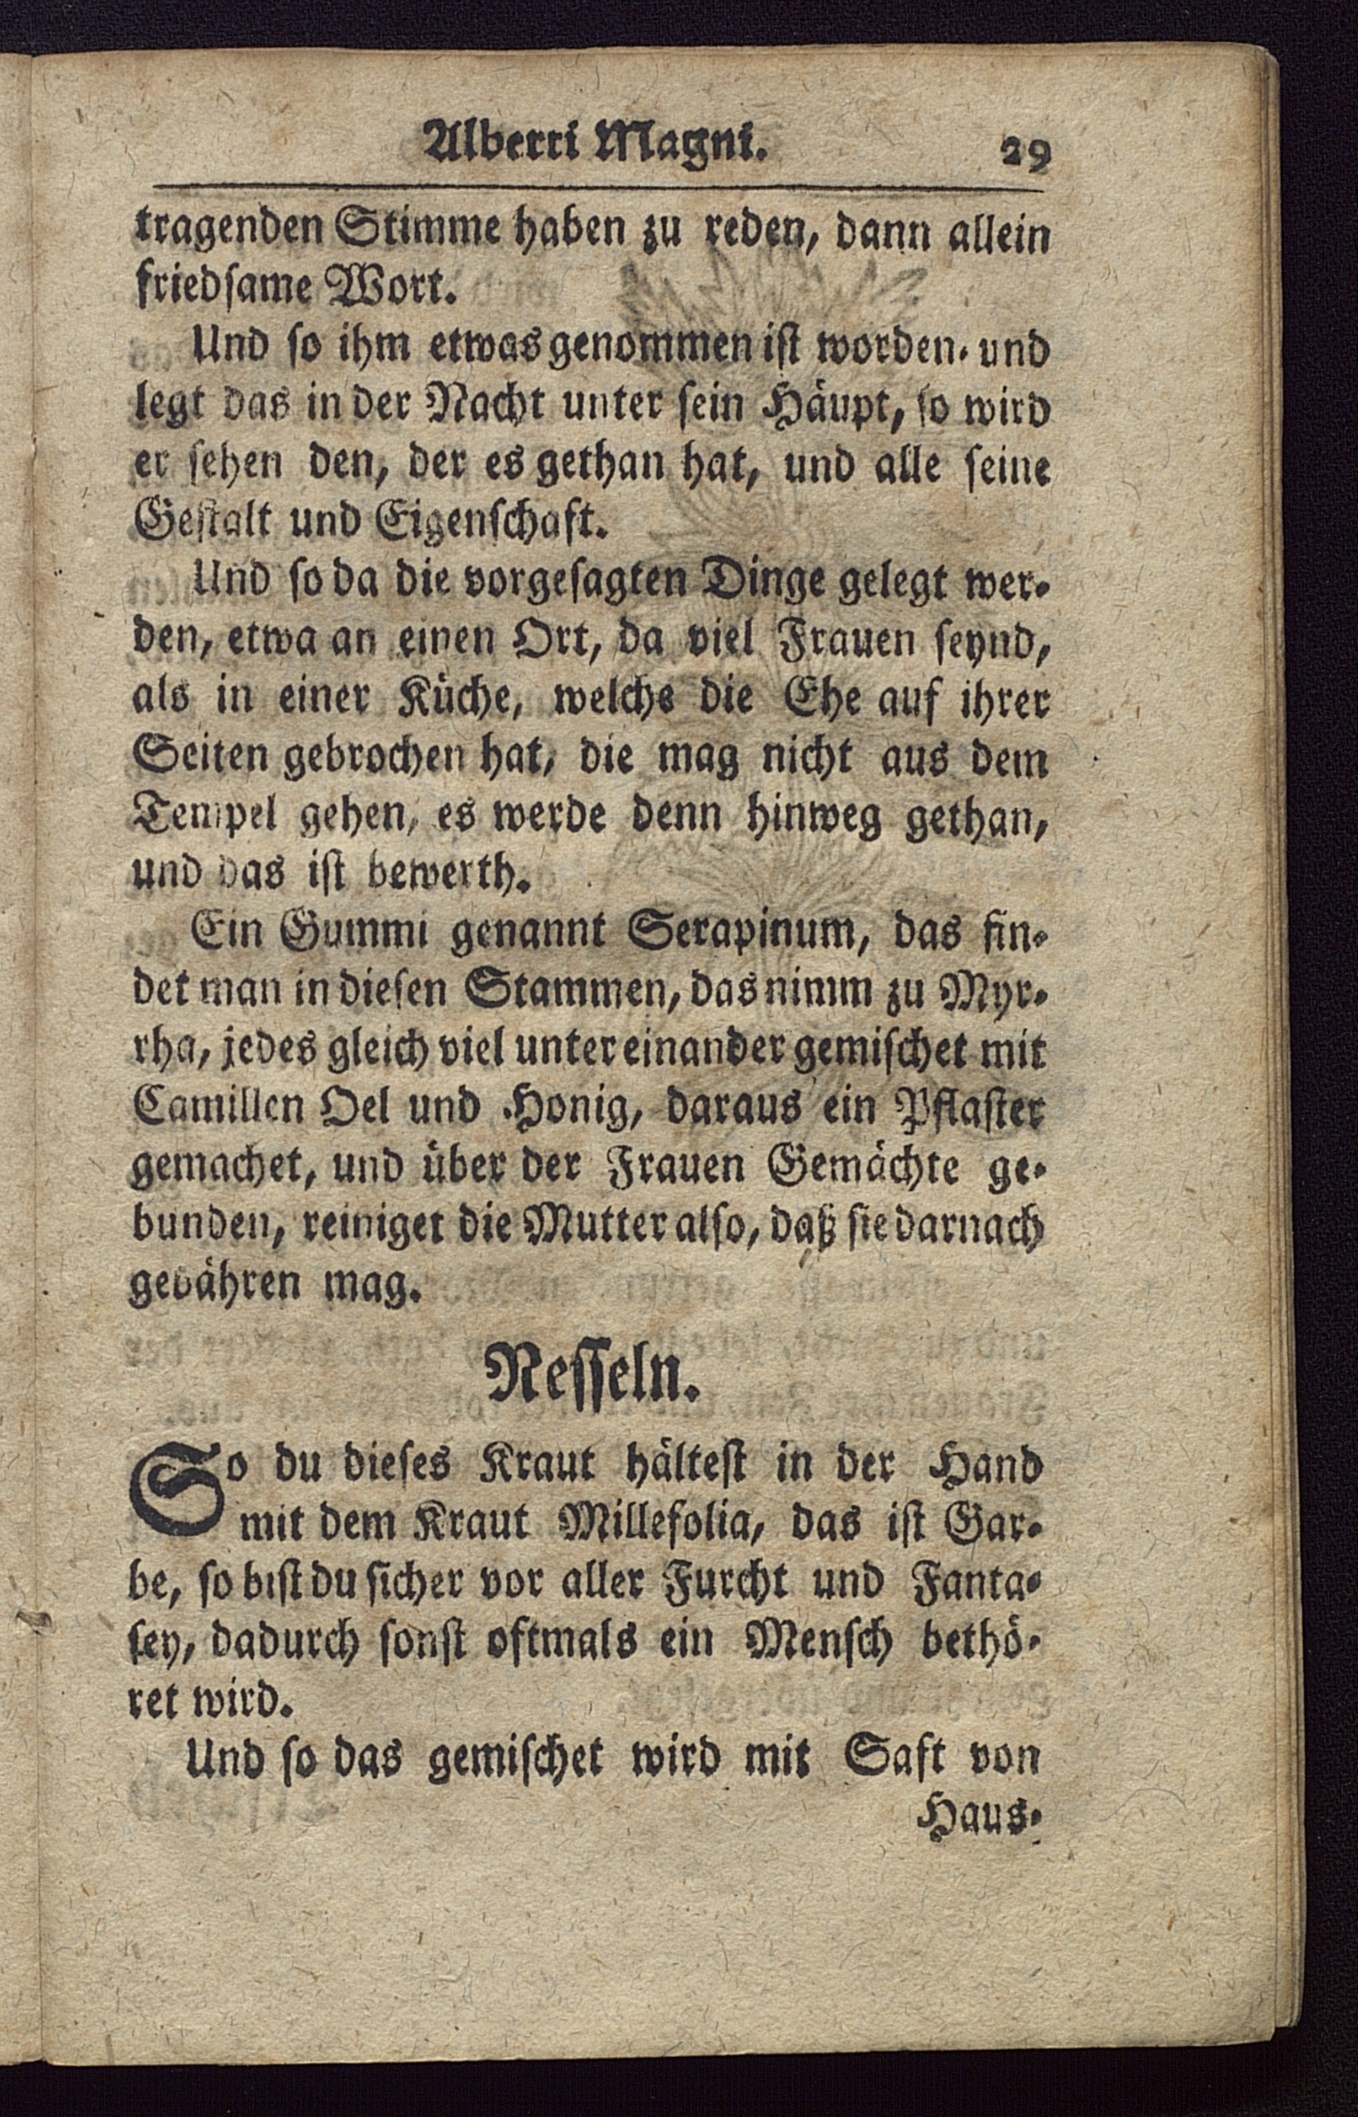 Alberti Magni. 29
tragenden Stimme haben zu reden, dann allein
friedsame Wort.
Und so ihm etwas genommen ist worden, und
legt das in der Nacht unter sein Häupt, so wird
er sehen den, der es gethan hat, und alle seine
Gestalt und Eigenschaft.
Und so da die vorgesagten Dinge gelegt wer-
den, etwa an einen Ort, da viel Frauen seynd,
als in einer Küche, welche die Ehe auf ihrer
Seiten gebrochen hat, die mag nicht aus dem
Tempel gehen, es werde denn hinweg gethan,
und das ist bewerth.
Ein Gummi genannt Serapinum, das fin-
det man in diesen Stammen, das nimm zu Myr-
rha, jedes gleich viel unter einander gemischet mit
Camillen Oel und Honig, daraus ein Pflaster
gemachet, und über der Frauen Gemächte ge-
bunden, reiniget die Mutter also, daß sie darnach
gebähren mag.
Nesseln.
So du dieses Kraut hältest in der Hand
mit dem Kraut Millefolia, das ist Gar-
be, so bist du sicher vor aller Furcht und Fanta-
sey, dadurch sonst oftmals ein Mensch bethö-
ret wird.
Und so das gemischet wird mit Saft von
Haus-